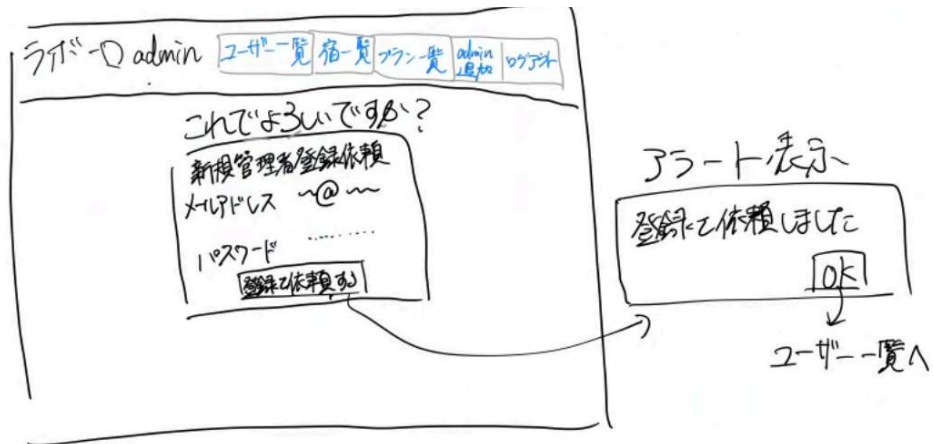 ライボーロ admin ユーザー一覧 宿一覧 プラン一覧 admin追加 ログアウト
これでよろしいですか?
新規管理者登録依頼
メールアドレス ~@~
パスワード ........
登録を依頼する
アラート表示
登録を依頼しました
OK
ユーザー一覧へ